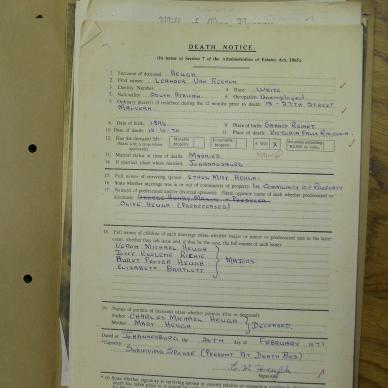 DEATH NOTICE.
(In terms of Section 7 of the Administration of Estates Act, 1965)
1. Surname of deceased HEUGH.
2. First names LEANDER VAN REENEN
3. Identity Number 4. Race WHITE
5. Nationality SOUTH AFRICAN 6. Occupation UNEMPLOYED.
7. Ordinary place(s) of residence during the 12 months prior to death 18-27TH STREET
MALVERN.
8. Date of birth 1896 9. Place of birth GRAAFF REINET.
10. Date of death 12-10-70 11. Place of death VICTORIA FALLS
12. Has the deceased left
Movable property
Immovable property
A Will X
13. Marital status at time of death MARRIED
14. If married, place where married JOHANNESBURG
15. Full names of surviving spouse ETHEL MAY HEUGH.
16. State whether marriage was in or out of community of property IN COMMUNITY OF PROPERTY
17. Name(s) of predeceased and/or divorced spouse(s). (State opposite name of each whether predeceased or
divorced)
OLIVE HEUGH (PREDECEASED)
18. Full names of children of each marriage (state whether major or minor or predeceased and in the latter
event, whether they left issue and, if that be the case, the full names of such issue)
MICHAEL HEUGH
JOYCE
HEUGH
ELIZABETH BARTLETT.
MAJORS
19. Names of parents of deceased (state whether parents alive or deceased)
Father CHARLES MICHAEL HEUGH
Mother MARY HEUGH
DECEASED.
Dated at JOHANNESBURG the 26TH day of FEBRUARY 1971
*Capacity SURVIVING SPOUSE (PRESENT AT DEATH BED)
Heugh
Signature